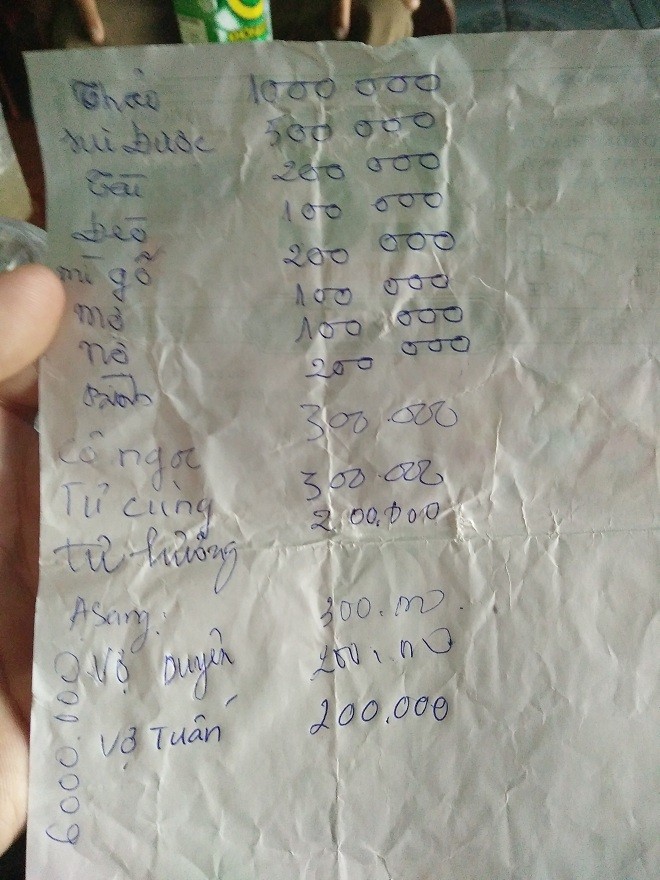 Thảo 1000 000
sui Dược 500 000
Tài 200 000
Đeo 100 000
mì gỗ 200 000
mơ 100 000
nô 100 000
200 000
Cô ngọc 300.000
Tư cùng 300.000
Tư hường 200.000
A Sang: 300.000
Vợ Duyên 200.000
Vợ Tuấn 200.000
6000.000